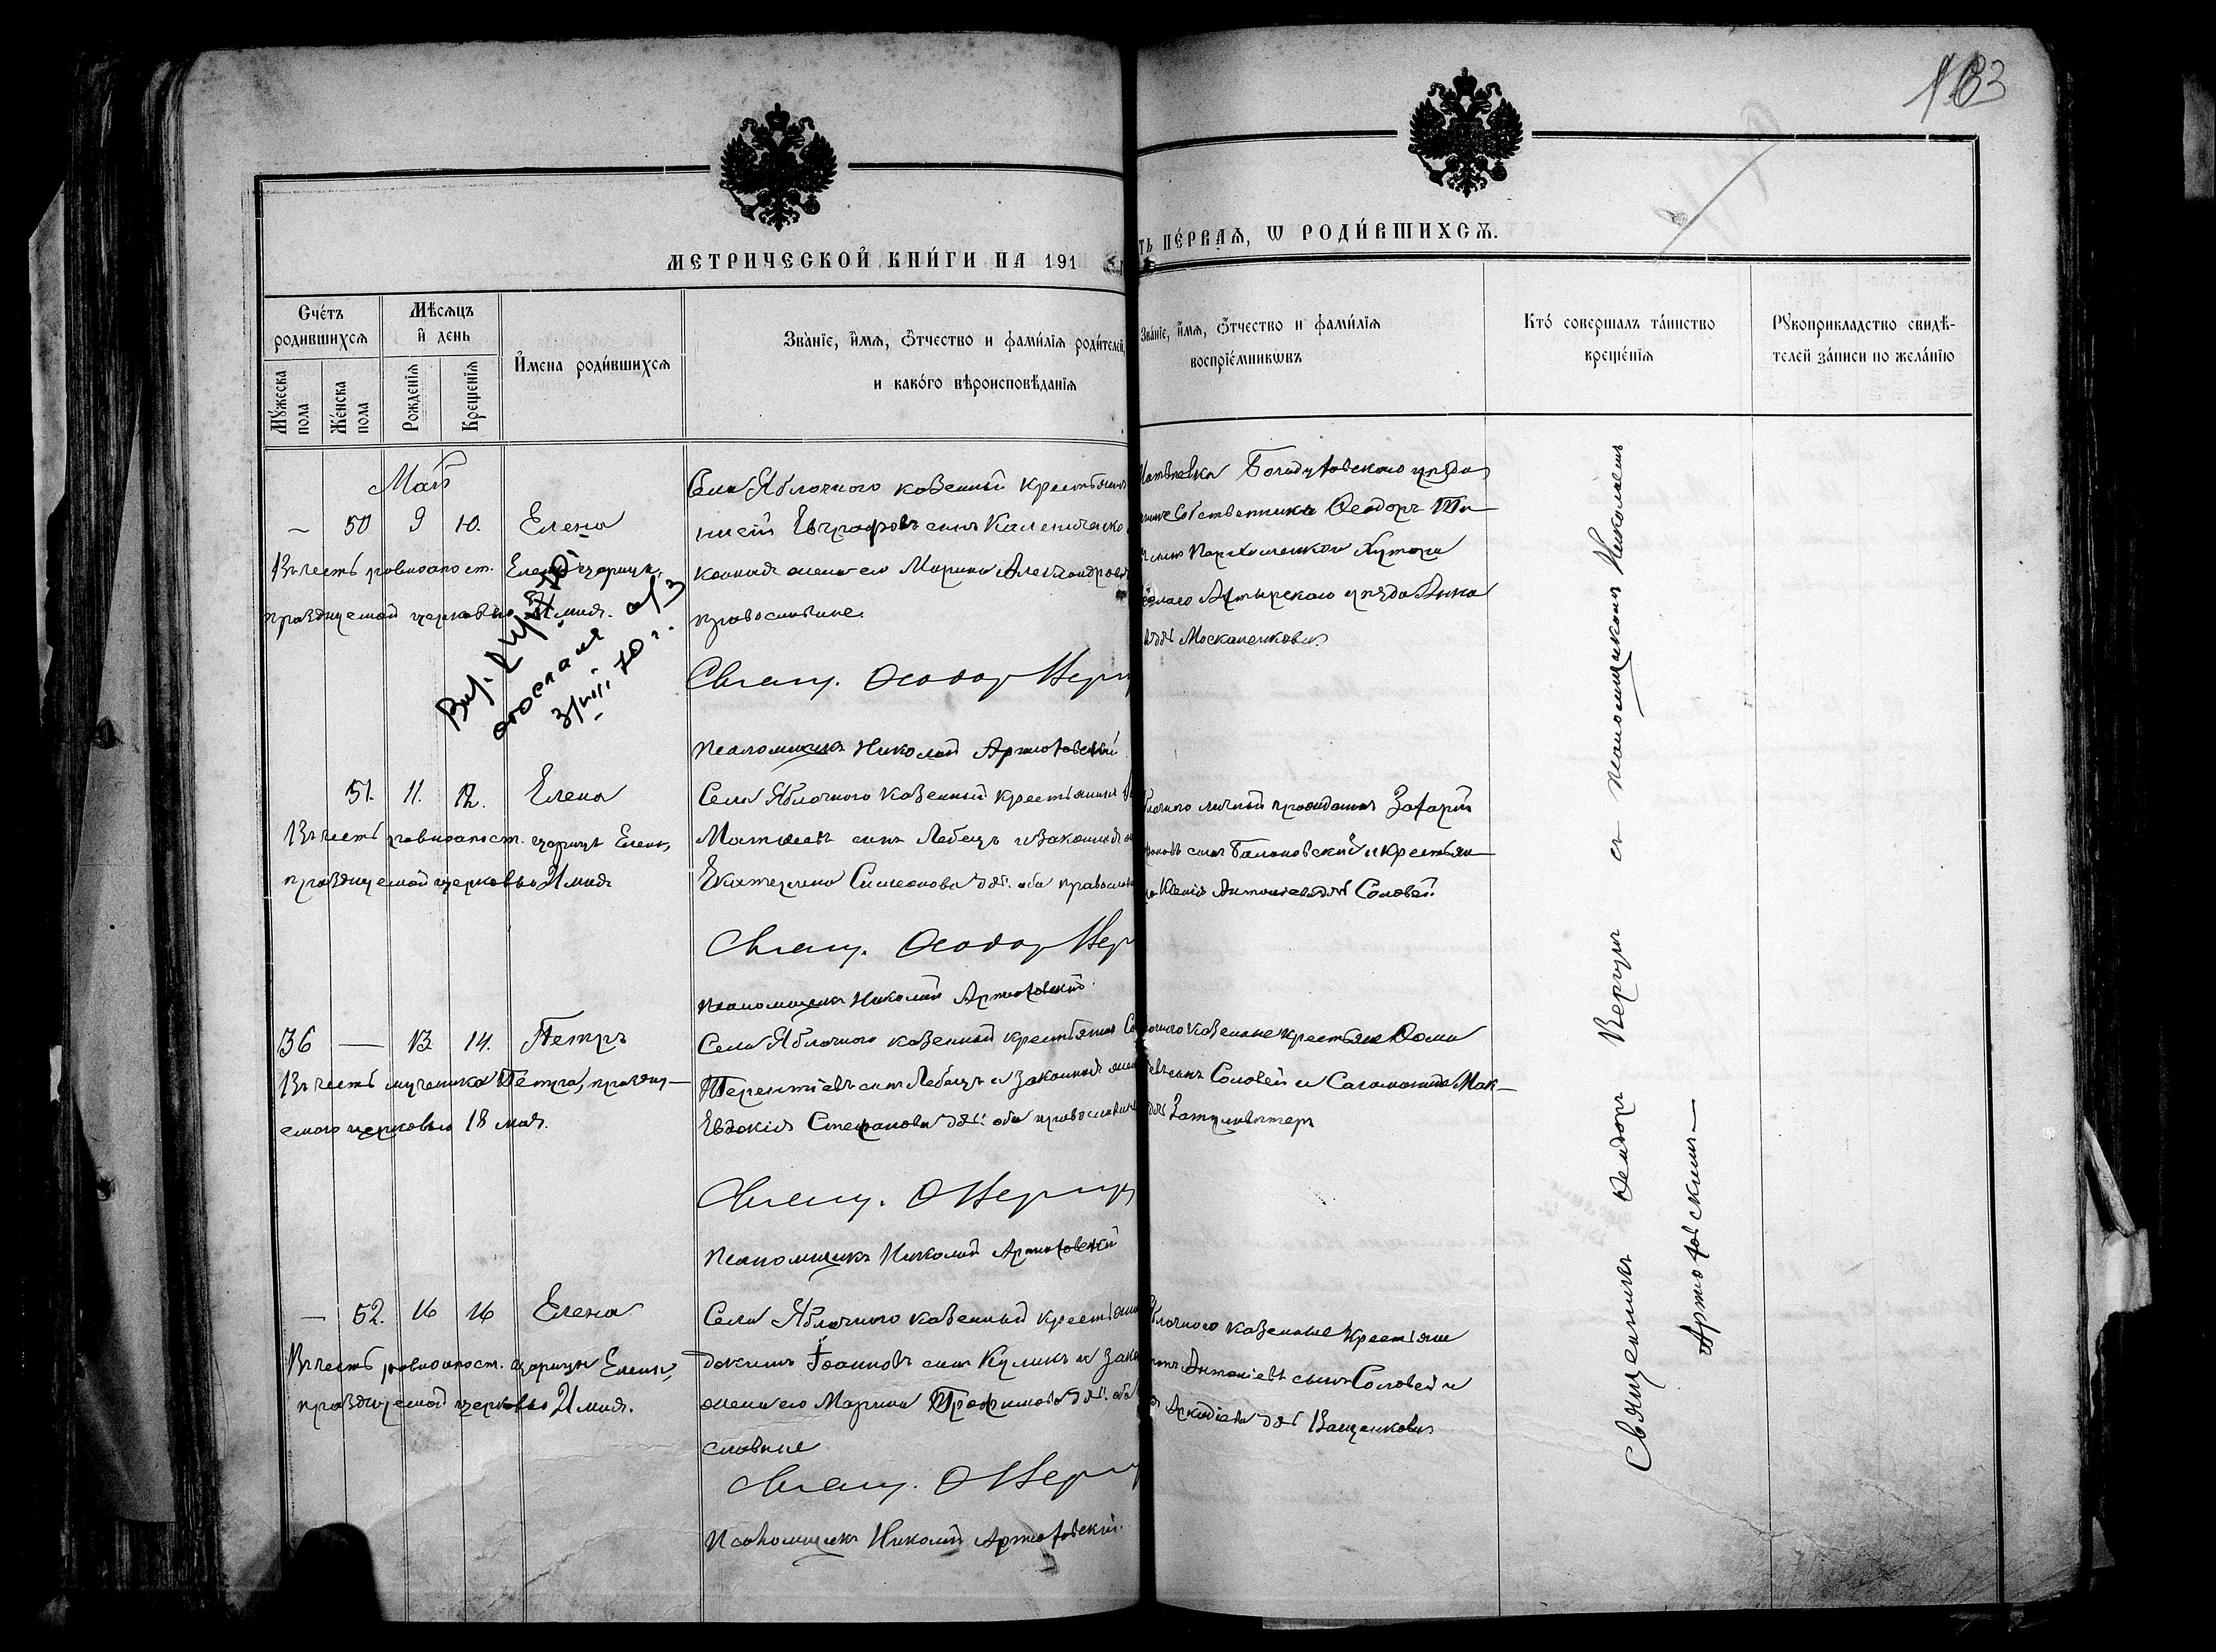 183
МЕТРИЧЕСКОЙ КНИГИ НА 191
ТЬ ПЕРВАЯ, Ѡ РОДИВШИХСЯ.
Счетъ родившихся
Мужеска пола
Женска пола
Мѣсяцъ и день
Рожденія
Крещенія
Имена родившихся
Званіе, имя, отчество и фамилія родителей,
и какого вѣроисповѣданія
Званіе, имя, отчество и фамилія
воспріемниковъ
Кто совершалъ таинство
крещенія
Рукоприкладство свидѣ-
телей записи по желанію
Май
— 50 9 10. Елена
Въ честь равноапост. Елены царицы,
празднуемой церковью 21 мая.
Села Яблочного казенный крестьянинъ
Евграфовъ сынъ Калениченко
конная жена его Марина Александрова
православные.
Свящ. Ѳеодоръ Вер
Псаломщикъ Николай Артюховскій
Богодуховскаго уѣзда
собственникъ Ѳеодоръ Ти-
сынъ Пархоменко и Хутора
Ахтырскаго уѣзда Анна
Москаленкова
51. 11. 12. Елена
Въ честь равноапост. царицы Елены,
празднуемой церковью 21 мая
Села Яблочного казенный крестьянинъ
сынъ Лебедь и законная
Екатерина Симеонова доч. оба православ
Свящ. Ѳеодоръ Вер
Псаломщикъ Николай Артюховскій.
личный гражданинъ Захарій
сынъ и крестьян-
Ксенія Антоніева доч Соловей.
36 — 13 14. Петръ
Въ честь мученика Петра, праздну-
емаго церковью 18 мая.
Села Яблочного казенный крестьянинъ
Терентіевъ сынъ Лебедь и законная жена
Евдокія Стефанова доч. оба православные
Свящ. Ѳ Вергун
Псаломщикъ Николай Артюховскій
казенные крестьяне Ѳома
сынъ Соловей и Саломонида Мак-
— 52. 16 16 Елена
Въ честь равноапост. царицы Елены,
празднуемой церковью 21 мая.
Села Яблочного казенный крестьянин
докимъ Іоанновъ сынъ Куликъ и зако
жена его Марина Трофимова доч. оба
славные
Свящ. Ѳ Верг
Псаломщикъ Николай Артюховскій.
казенные крестьяне
Антоніевъ сынъ Соловей и
Аркадіева доч Ващенкова
Священникъ Ѳеодоръ Вергунъ съ псаломщикомъ Николаемъ
Артюховскимъ